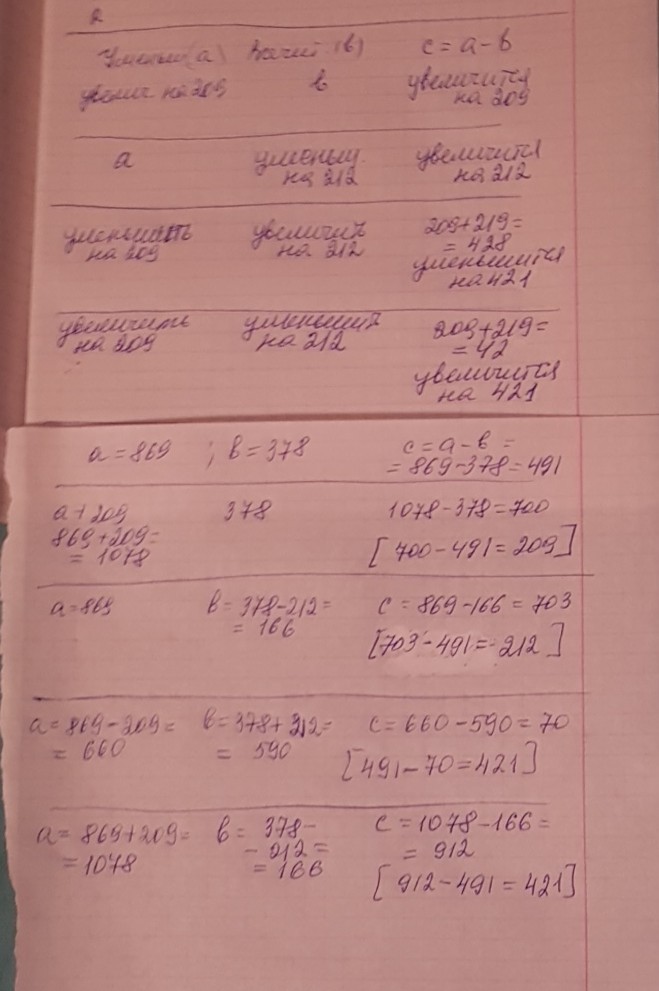 Уменьш(а) Вычит (в) c = a - b
увелич на 209 в увеличится на 209
а уменьш. на 212 увеличится на 212
уменьшить на 209 увеличить на 212 209+219=
= 428
уменьшится на 421
увеличить на 209 уменьшить на 212 209+219=
= 42
увеличится на 421
a = 869 ; b = 378 c = a - b =
= 869-378 = 491
a + 209 378 1078-378=700
869+209=
= 1078 [700-491=209]
a=869 b = 378-212= c = 869-166 = 703
= 166 [703-491=212]
a = 869-209= b=378+212= c = 660-590=70
= 660 = 590 [491-70=421]
a = 869+209= b = 378- c = 1078-166=
=1078 - 212= = 912
= 166 [912-491=421]